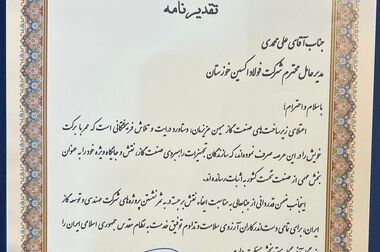 تقدیرنامه
جناب آقای علی محمدی
مدیرعامل محترم شرکت فولاد اکسین خوزستان
با سلام و احترام؛
اعتلای زیرساخت‌های صنعت گاز میهن عزیزمان، دستاورد درایت و تلاش فرهیختگانی است که عمر با برکت
خویش را در این عرصه صرف نموده‌اند، که سازندگان تجهیزات راهبردی صنعت گاز، نقش و جایگاه ویژه خود را به عنوان
بخش مهمی از صنعت نفت کشور به اثبات رسانده‌اند.
اینجانب ضمن قدردانی از جنابعالی به مناسبت ایفاء نقش برجسته در به ثمر نشستن پروژه‌های شرکت مهندسی و توسعه گاز
ایران، برای تمامی دست اندرکاران آرزوی سلامت و تداوم توفیق خدمت به نظام مقدس جمهوری اسلامی ایران را